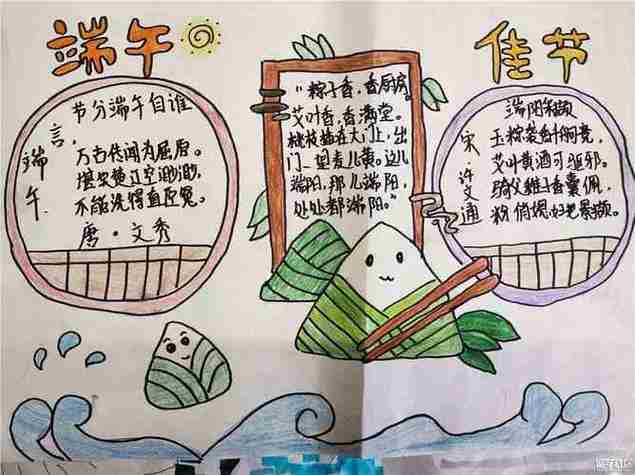 端午 佳节
节分端午自谁
言,
端午
万古传闻为屈原。
堪笑楚江空渺渺,
不能洗得直臣冤。
唐·文秀
"粽子香,香厨房。
艾叶香,香满堂。
桃枝插在大门上,出
门一望麦儿黄。这儿
端阳,那儿端阳,
处处都端阳。"
端阳采撷
宋·许文通
玉粽袭香千舸竞,
艾叶黄酒可驱邪。
骑父稚子香囊佩,
粉俏媳好把景撷。